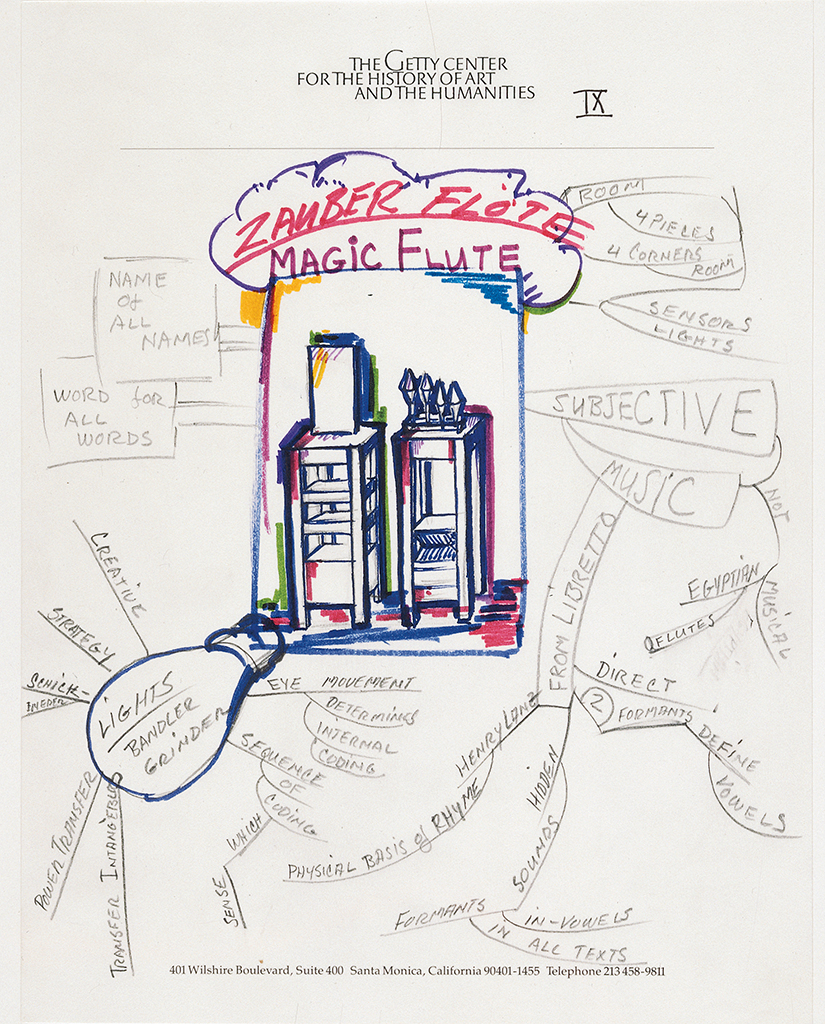 THE GETTY CENTER
FOR THE HISTORY OF ART
AND THE HUMANITIES
IX
ZAUBER FLÖTE
MAGIC FLUTE
ROOM
4 PIECES
4 CORNERS
ROOM
SENSORS
LIGHTS
NAME
OF
ALL
NAMES
WORD for
ALL
WORDS
SUBJECTIVE
MUSIC
NOT
MUSICAL
EGYPTIAN
FLUTES
FROM LIBRETTO
DIRECT
2
FORMANTS
DEFINE
VOWELS
HENRY LANZ
PHYSICAL BASIS of RHYME
HIDDEN
SOUNDS
FORMANTS
IN-VOWELS
IN ALL TEXTS
CREATIVE
STRATEGY
LIGHTS
BANDLER
GRINDER
EYE MOVEMENT
DETERMINES
INTERNAL
CODING
SEQUENCE
OF
CODING
WHICH
SENSE
POWER TRANSFER
TRANSFER
401 Wilshire Boulevard, Suite 400 Santa Monica, California 90401-1455 Telephone 213 458-9811